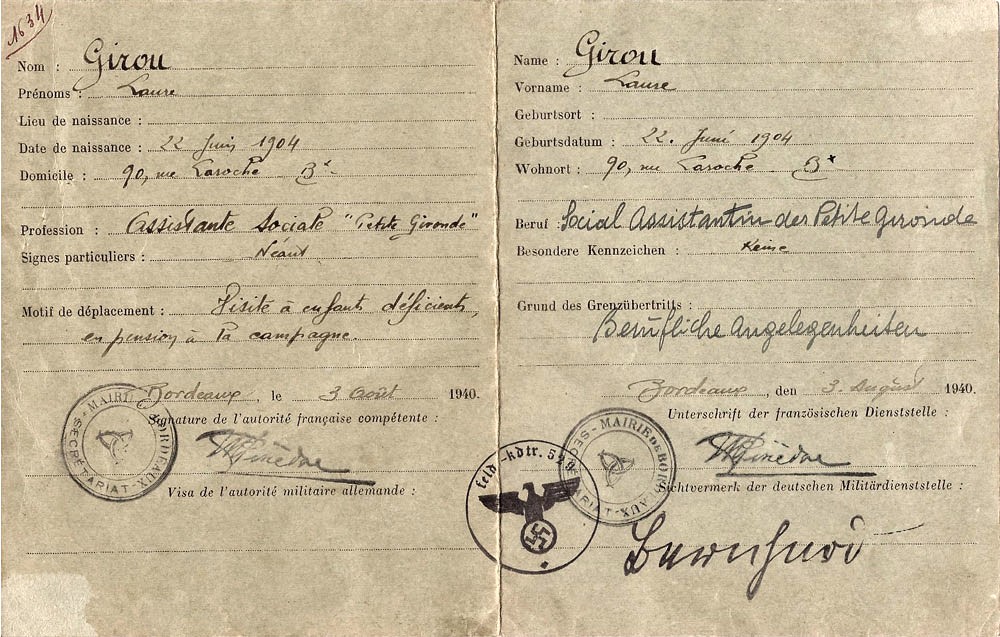 1634
Nom : Girou
Prénoms : Laure
Lieu de naissance :
Date de naissance : 22 Juin 1904
Domicile : 90, rue Laroche Bx
Profession : Assistante Sociale "Petite Gironde"
Signes particuliers : Néant
Motif de déplacement : Visite à enfants déficients,
en pension à la campagne.
Bordeaux, le 3 Août 1940.
Signature de l'autorité française compétente :
MAIRIE DE BORDEAUX - SECRÉTARIAT -
Visa de l'autorité militaire allemande :
Name : Girou
Vorname : Laure
Geburtsort :
Geburtsdatum : 22. Juni 1904
Wohnort : 90, rue Laroche Bx
Beruf : Social Assistantin der Petite Gironde
Besondere Kennzeichen : Keine
Grund des Grenzübertritts :
Berufliche Angelegenheiten
Bordeaux, den 3. August 1940.
Unterschrift der französischen Dienststelle :
MAIRIE DE BORDEAUX - SECRÉTARIAT -
Sichtvermerk der deutschen Militärdienststelle :
Feld-kdtr.